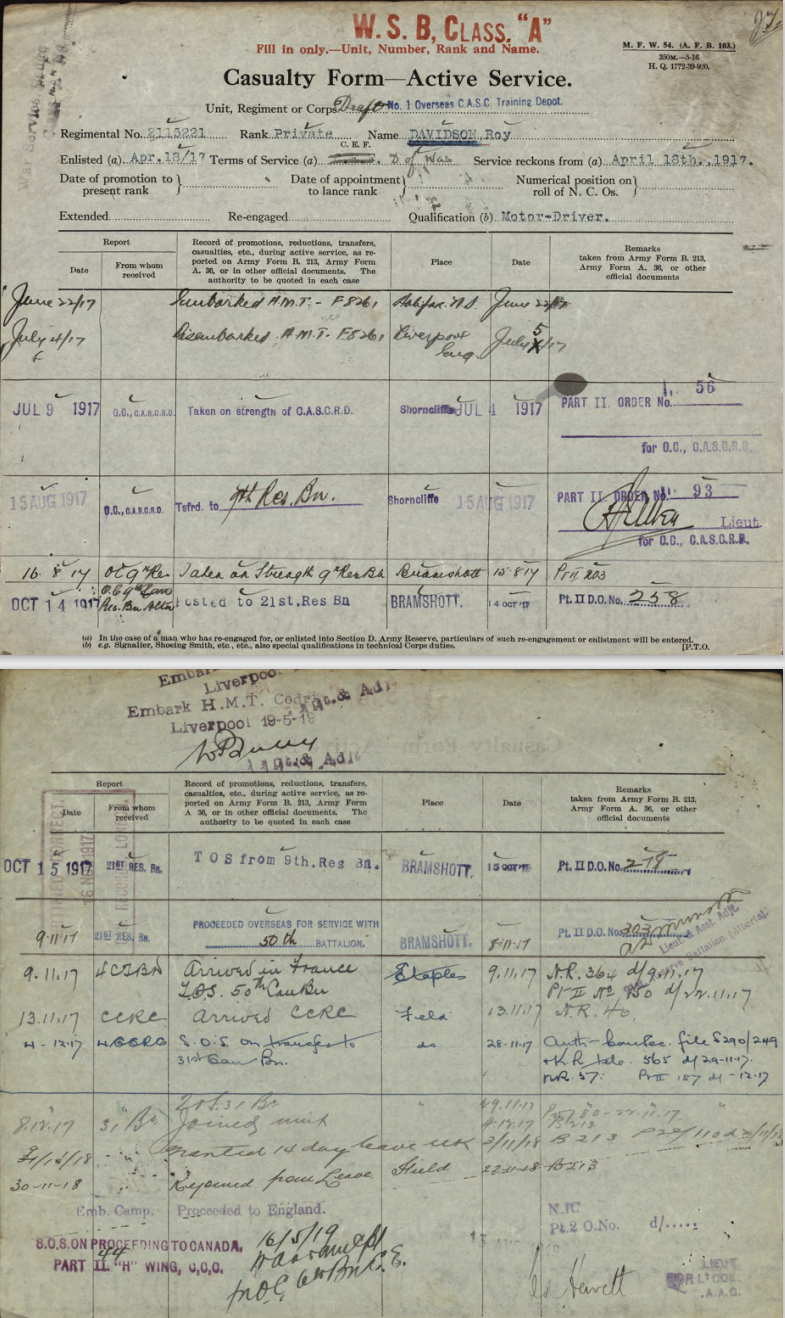 W.S.B. CLASS. "A"
Fill in only.—Unit, Number, Rank and Name.
M. F. W. 54. (A. F. B. 103.)
350M.—5-16
H. Q. 1772-39-920.
Casualty Form—Active Service.
Unit, Regiment or Corps Draft No. 1 Overseas C.A.S.C. Training Depot.
Regimental No. 2115221 Rank Private Name DAVIDSON, Roy
C. E. F.
Enlisted (a) Apr.18/17 Terms of Service (a) D of War Service reckons from (a) April 18th., 1917.
Date of promotion to present rank } Date of appointment to lance rank } Numerical position on roll of N. C. Os. }
Extended Re-engaged Qualification (b) Motor-Driver.
Report
Date From whom received
Record of promotions, reductions, transfers, casualties, etc., during active service, as reported on Army Form B. 213, Army Form A. 36, or in other official documents. The authority to be quoted in each case
Place
Date
Remarks
taken from Army Form B. 213, Army Form A. 36, or other official documents
June 22/17 Embarked H.M.T.- F8261 Halifax. N.S. June 22/17
July 4/17 Disembarked H.M.T- F8261 Liverpool Eng. July 5/17
JUL 9 1917 O.C., C.A.S.C.R.D. Taken on strength of C.A.S.C.R.D. Shorncliffe JUL 4 1917 PART II. ORDER No. 56
for O.C., C.A.S.C.R.D.
15 AUG 1917 O.C., C.A.S.C.R.D. Tsfrd. to 9th Res. Bn. Shorncliffe 15 AUG 1917 PART II. ORDER No. 93
Lieut
for O.C., C.A.S.C.R.D.
16-8-17 OC 9th Res Taken on Strength 9th Res Bn Bramshott 15-8-17 Pt II 203
OCT 14 1917 O.C. 9th Res. Bn Alta Posted to 21st. Res Bn BRAMSHOTT. 14 OCT 17 Pt. II D.O. No. 258
(a) In the case of a man who has re-engaged for, or enlisted into Section D. Army Reserve, particulars of such re-engagement or enlistment will be entered.
(b) e.g. Signaller, Shoeing Smith, etc., etc., also special qualifications in technical Corps duties. [P.T.O.
Liverpool
Embark H.M.T. Cedric
Liverpool 19-5-19
Report
Date From whom received
Record of promotions, reductions, transfers, casualties, etc., during active service, as reported on Army Form B. 213, Army Form A. 36, or in other official documents. The authority to be quoted in each case
Place
Date
Remarks
taken from Army Form B. 213, Army Form A. 36, or other official documents
OCT 15 1917 21ST RES. Bn. TOS from 9th. Res Bn. BRAMSHOTT. 15 OCT 17 Pt. II D.O. No. 278
9-11-17 21ST RES. Bn. PROCEEDED OVERSEAS FOR SERVICE WITH 50th BATTALION. BRAMSHOTT. 8-11-17 Pt II D.O. No. 303
9.11.17 4CIBD Arrived in France Etaples 9.11.17 N.R. 364 d/9.11.17
T.O.S. 50th Can Bn Pt II No 150 d/22.11.17
13.11.17 CCRC Arrived CCRC Field 13.11.17 N.R. 40.
4-12-17 S.O.S on transfer to 31st Can Bn. do 28-11-17 Auth- Can Rec. file S290/249
565 d/29-11-17.
N.R. 57. Pt II 157 d/ -12-17
T.o.S. 31 Bn 29.11.17
8.12.17 31st Bn Joined unit 4.12.17 B213
Granted 14 day leave UK B 213
30-11-18 Rejoined from Leave Field 22-11-18 B213
Emb. Camp. Proceeded to England. N.R.
Pt.2 O.No. d/.....
S.O.S ON PROCEEDING TO CANADA. 16/5/19
PART II. 44 "H" WING, C.C.C.
LIEUT
FOR LT COL.
A.A.G.